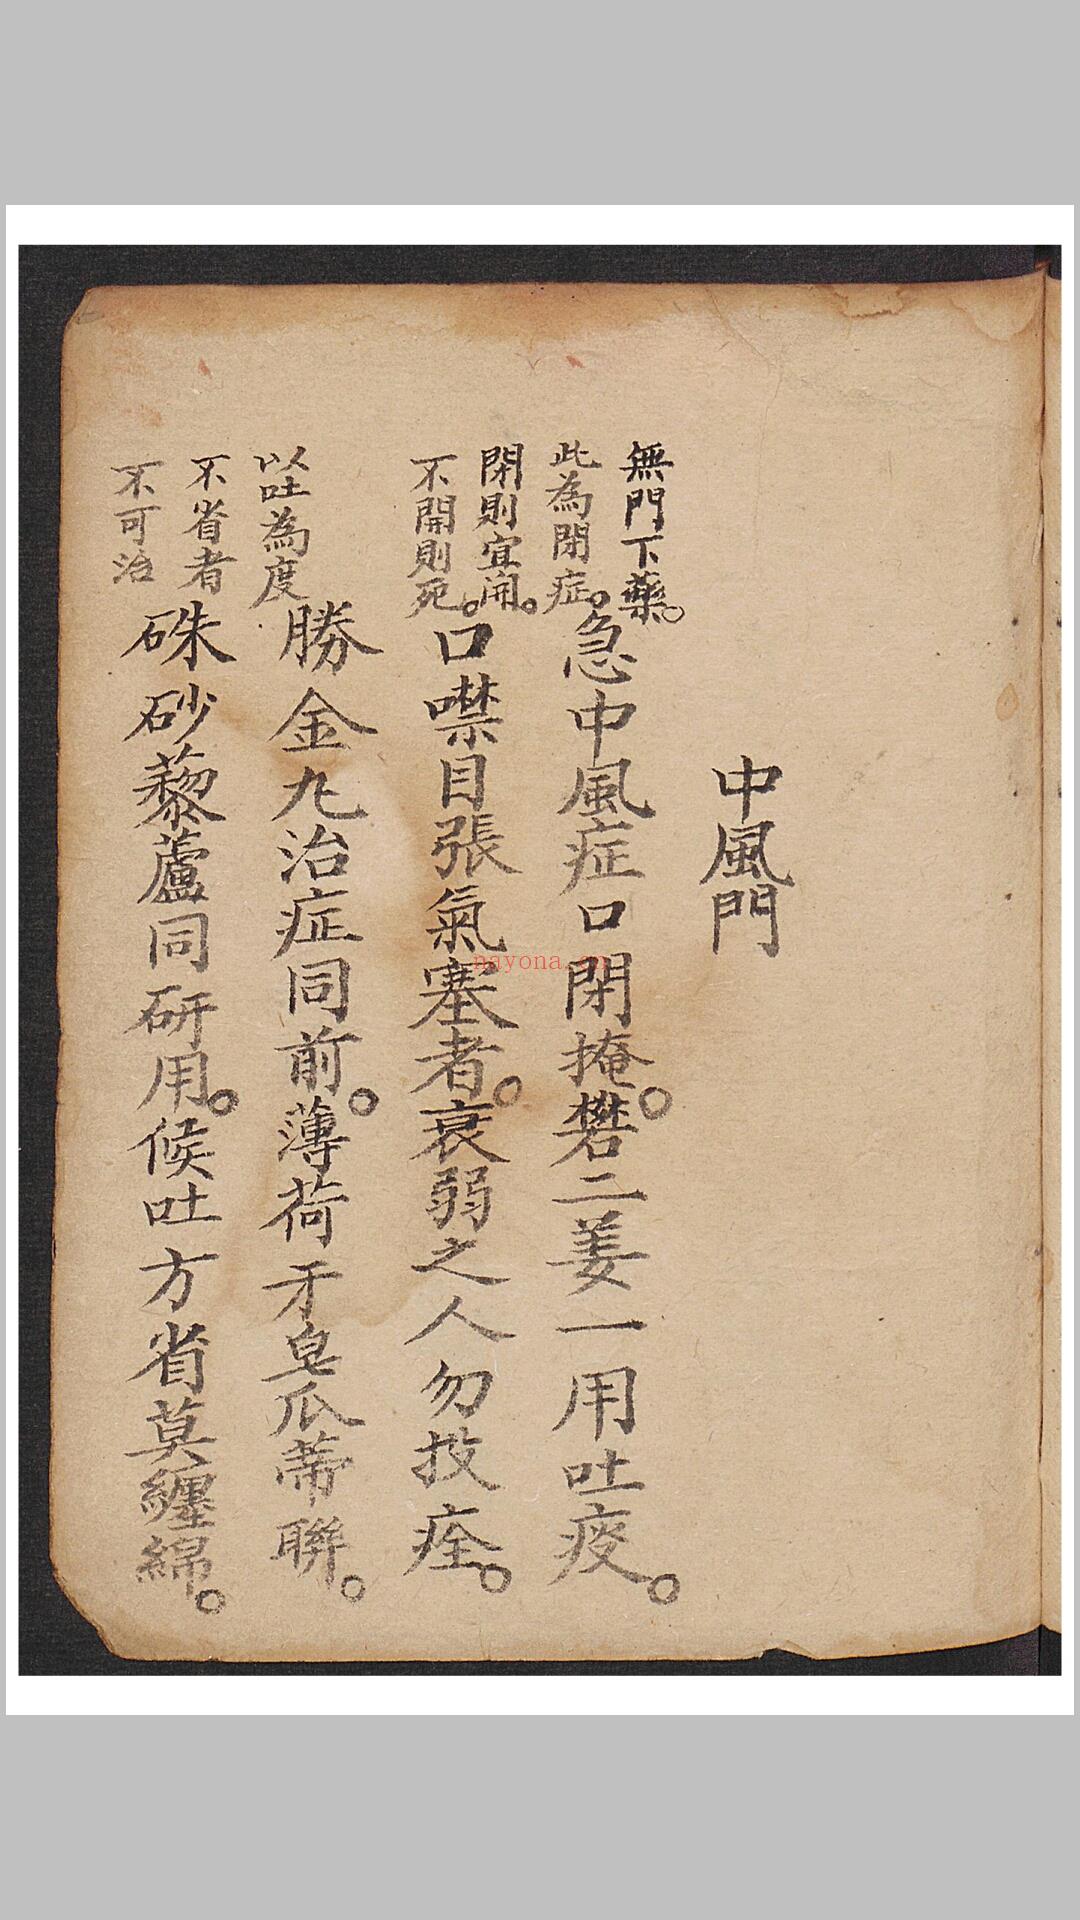 中風門
無門下藥。
此為閉症。
急中風症口閉掩。礬二姜一用吐痰。
閉則宜開。
不開則死。
口噤目張氣塞者。衰弱之人勿投痊。
以吐為度
勝金丸治症同前。薄荷牙皂瓜蒂聯。
不省者
不可治
硃砂藜蘆同研用。候吐方省莫纏綿。
nayona.cn